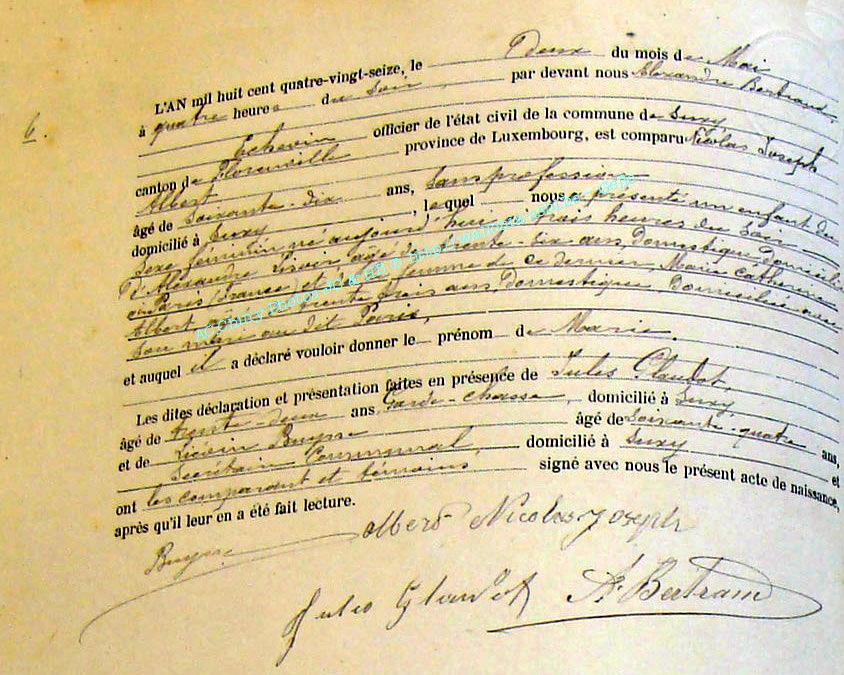 6.
L'AN mil huit cent quatre-vingt-seize, le Deux du mois de Mai
à quatre heures du Soir, par devant nous Alexandre Bertrand,
Echevin officier de l'état civil de la commune de Suxy
canton de Florenville province de Luxembourg, est comparu Nicolas Joseph
Albert
âgé de Soixante-dix ans, Sans profession
domicilié à Suxy, lequel nous a présenté un enfant du
sexe féminin né aujourd'hui à trois heures du Soir
D'Alexandre âgé de trente-six ans, Domestique, Domicilié
à Paris (France) et de femme de ce dernier, Marie Catherine
Albert trois ans, Domestique Domiciliée avec
son mari au dit Paris,
et auquel il a déclaré vouloir donner le prénom de Marie.
Les dites déclaration et présentation faites en présence de Jules Glaudot,
âgé de trente-deux ans, Garde-chasse, domicilié à Suxy,
et de Buysse âgé de Soixante-quatre ans,
Secrétaire Communal, domicilié à Suxy et
ont les comparant et témoins signé avec nous le présent acte de naissance,
après qu'il leur en a été fait lecture.
Buysse albert Nicolas Joseph
Jules Glaudot A. Bertrand